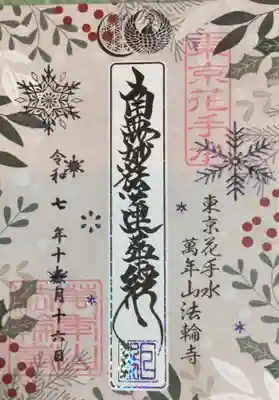 東京花手水
東京花手水
萬年山法輪寺
南無妙法蓮華經
令和七年十二月十六日